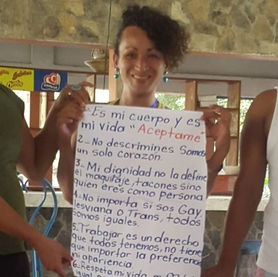 Es mi cuerpo y es
mi vida "Aceptame"
2... No descrimines Somos
un solo corazon.
3. Mi dignidad no la define
el maquillaje, tacones sino
quien eres como persona
4. No importa si sos Gay
Lesviana o Trans, todos
somos iguales.
5. Trabajar es un derecho
que todos tenemos, no tiene
que importar la preferencia
ni apariencia.
6. Respeta mi vida